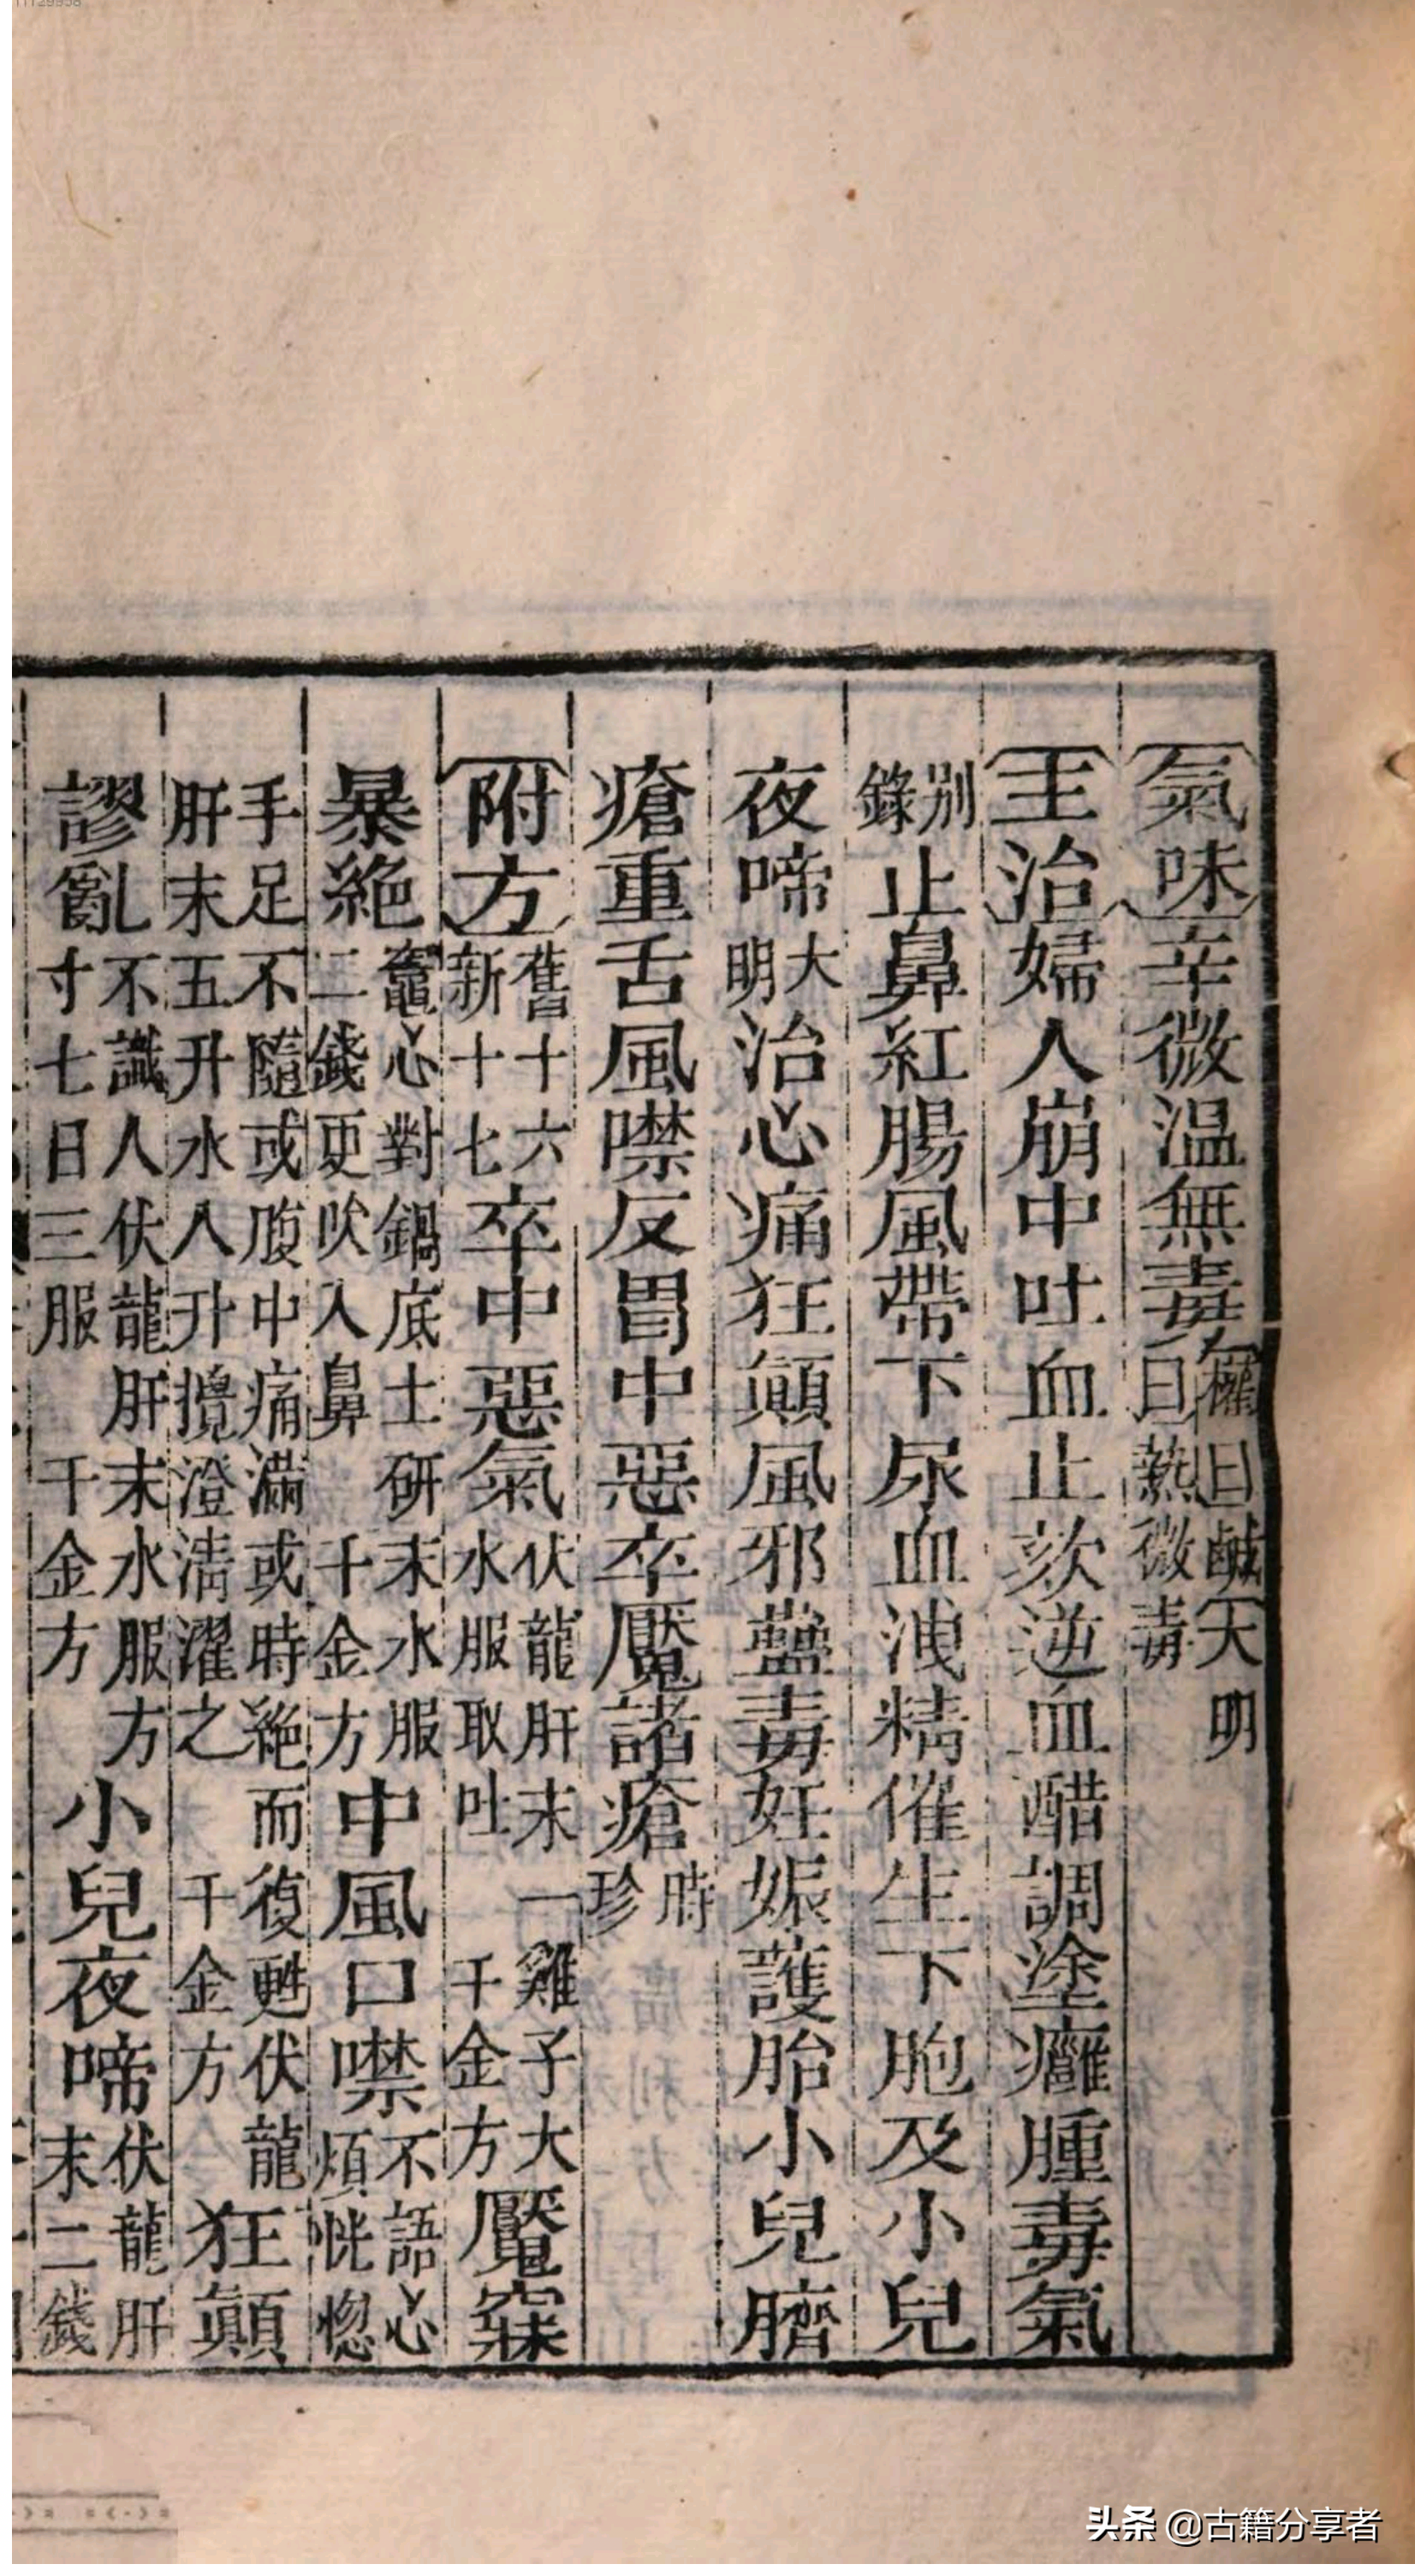 氣味辛微温無毒權曰鹹大明曰熱微毒
主治婦人崩中吐血止欬逆血醋調塗癰腫毒氣
別錄止鼻紅腸風帶下尿血洩精催生下胞及小兒
夜啼大明治心痛狂顛風邪蠱毒妊娠護胎小兒臍
瘡重舌風噤反胃中惡卒魘諸瘡時珍
附方舊十六新十七卒中惡氣伏龍肝末一雞子大水服取吐千金方魘寐
暴絶竈心對鍋底土研末水服二錢更吹入鼻千金方中風口噤不語心煩恍惚
手足不隨或腹中痛滿或時絶而復甦伏龍肝末五升水八升攪澄清濯之千金方狂顛
謬亂不識人伏龍肝末水服方寸七日三服千金方小兒夜啼伏龍肝末二錢
头条 @古籍分享者